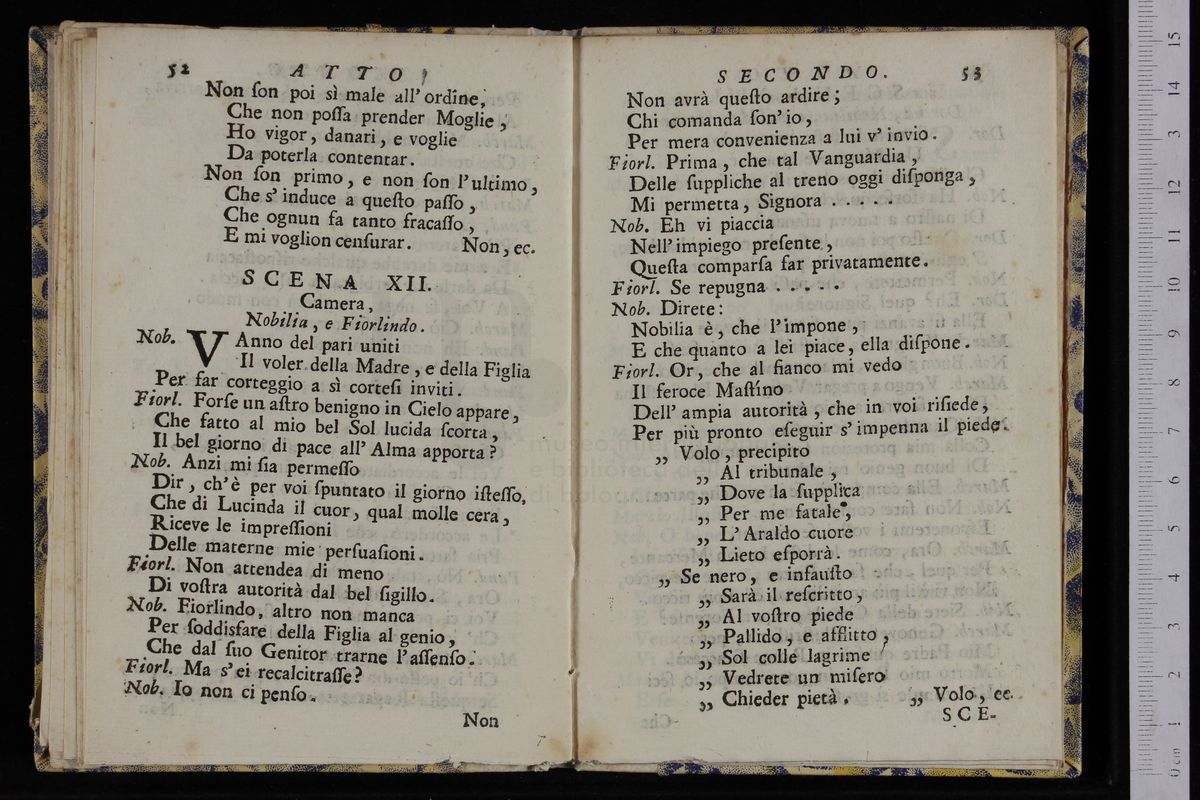 52 ATTO
Non ſon poi sì male all' ordine,
Che non poſſa prender Moglie,
Ho vigor, danari, e voglie
Da poterla contentar.
Non ſon primo, e non ſon l'ultimo,
Che s'induce a queſto paſſo,
Che ognun fa tanto fracaſſo,
E mi voglion cenſurar. Non, ec.
SCENA XII.
Camera,
Nobilia, e Fiorlindo.
Nob. VAnno del pari uniti
Il voler della Madre, e della Figlia
Per far corteggio a sì corteſi inviti.
Fiorl. Forſe un aſtro benigno in Cielo appare,
Che fatto al mio bel Sol lucida ſcorta,
Il bel giorno di pace all' Alma apporta?
Nob. Anzi mi ſia permeſſo
Dir, ch'è per voi ſpuntato il giorno iſteſſo,
Che di Lucinda il cuor, qual molle cera,
Riceve le impreſſioni
Delle materne mie perſuaſioni.
Fiorl. Non attendea di meno
Di voſtra autorità dal bel ſigillo.
Nob. Fiorlindo, altro non manca
Per ſoddisfare della Figlia al genio,
Che dal ſuo Genitor trarne l'aſſenſo.
Fiorl. Ma s'ei recalcitraſſe?
Nob. Io non ci penſo.
Non
SECONDO. 53
Non avrà queſto ardire;
Chi comanda ſon' io,
Per mera convenienza a lui v' invio.
Fiorl. Prima, che tal Vanguardia,
Delle ſuppliche al treno oggi diſponga,
Mi permetta, Signora . . . . .
Nob. Eh vi piaccia
Nell'impiego preſente,
Queſta comparſa far privatamente.
Fiorl. Se repugna . . . . .
Nob. Direte:
Nobilia è, che l'impone,
E che quanto a lei piace, ella diſpone.
Fiorl. Or, che al fianco mi vedo
Il feroce Maſtino
Dell' ampia autorità, che in voi riſiede,
Per più pronto eſeguir s'impenna il piede.
„ Volo, precipito
„ Al tribunale,
„ Dove la ſupplica
„ Per me fatale,
„ L'Araldo cuore
„ Lieto eſporrà.
„ Se nero, e infauſto
„ Sarà il reſcritto,
„ Al voſtro piede
„ Pallido, e afflitto,
„ Sol colle lagrime
„ Vedrete un miſero
„ Chieder pietà. „ Volo, ec.
SCE-
0 cm 1 2 3 4 5 6 7 8 9 10 11 12 13 14 15